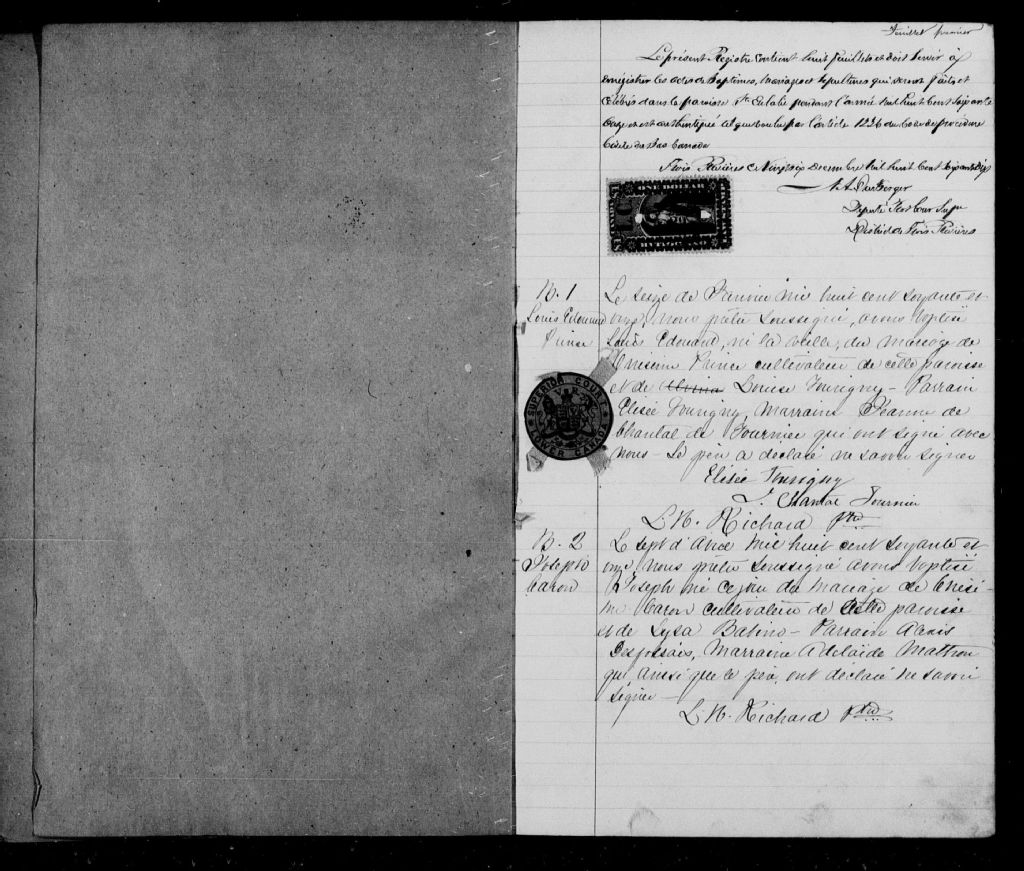 Feuillet premier
Le présent Registre contient huit feuillets et doit servir à
enregistrer les actes de baptêmes, mariages et sépultures qui seront faits et
célébrés dans la paroisse Ste Eulalie pendant l'année mil huit cent soixante
onze et est authentiqué tel que voulu par l'article 1236 du Code de procédure
Civile du Bas Canada
Trois Rivières ce Vingt six Decembre mil huit cent soixante dix
Député Prot Cour Supre
District des Trois Rivières
ONE DOLLAR
N. 1
Louis Edouard
Prince
Le seize de Janvier mil huit cent soixante et
onze, nous prêtre soussigné, avons baptisé
Louis Edouard, né la veille, du mariage de
Onisime Prince cultivateur de cette paroisse
et de Louise Tourigny - Parrain
Elisée Tourigny, Marraine Jeanne de
Chantal de Fournier qui ont signé avec
nous - Le père a déclaré ne savoir signer
Elisée Tourigny
J. Chantal Fournier
L. N. Richard Ptre
SUPERIOR COURT
LOWER CANADA
N. 2
Joseph
Caron
Le sept d'Avril mil huit cent soixante et
onze, nous prêtre soussigné avons baptisé
Joseph né ce jour du mariage de Onési-
me Caron cultivateur de cette paroisse
et de Lysa Parrain Alexis
Marraine Adelaïde
qui, ainsi que le père, ont déclaré ne savoir
signer -
L. N. Richard Ptre